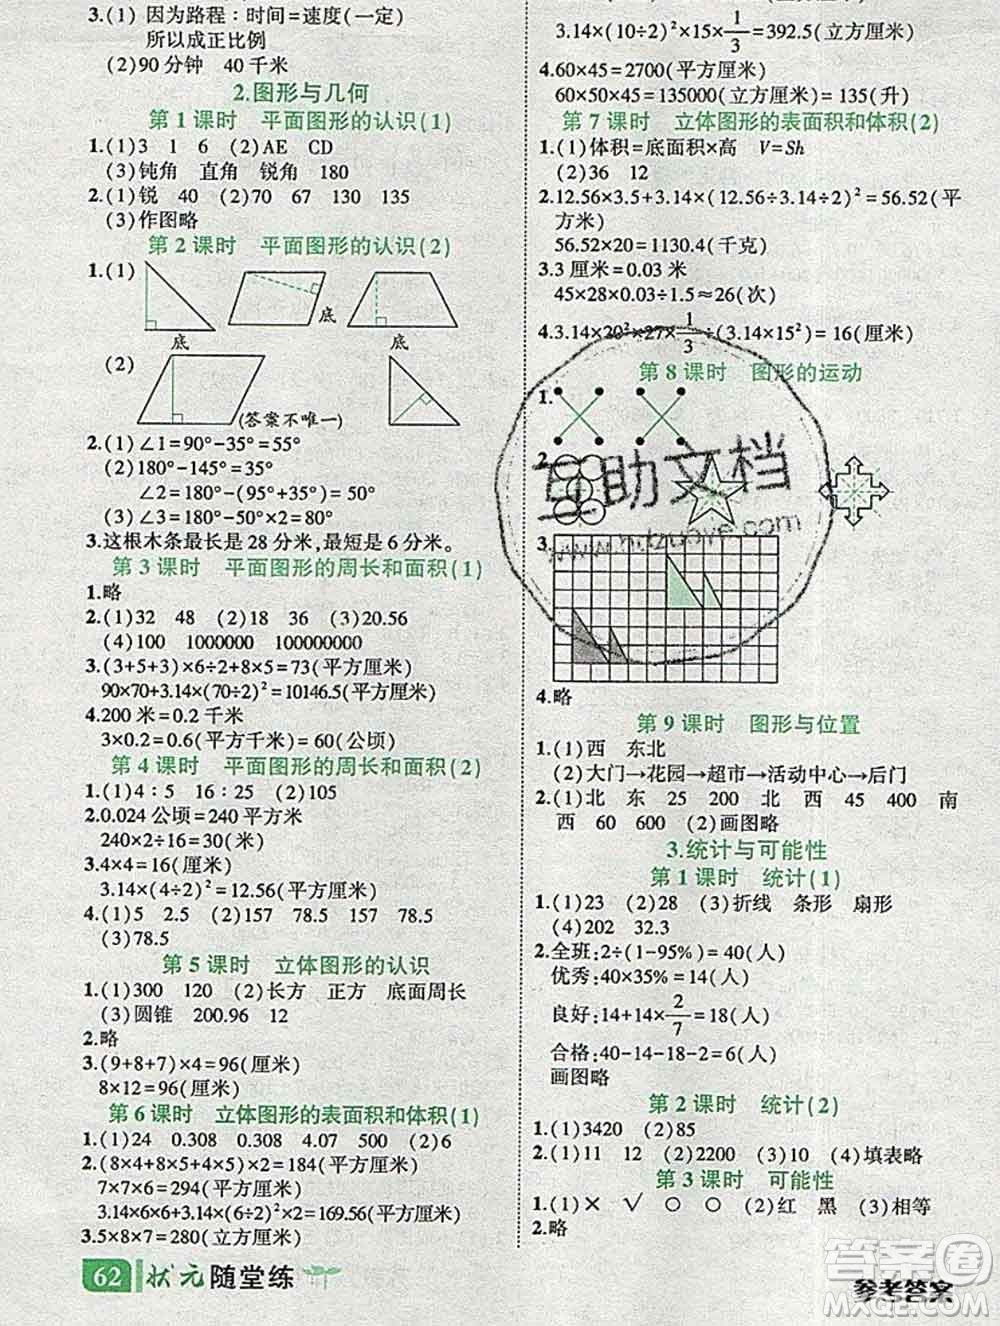 3.(1) 因为路程:时间=速度(一定)
所以成正比例
(2)90 分钟 40 千米
2.图形与几何
第 1 课时 平面图形的认识(1)
1.(1)3 1 6 (2)AE CD
(3)钝角 直角 锐角 180
2.(1)锐 40 (2)70 67 130 135
(3)作图略
第 2 课时 平面图形的认识(2)
1.(1)
底 底
(2)
(答案不唯一)
2.(1)∠1=90°-35°=55°
(2)180°-145°=35°
∠2=180°-(95°+35°)=50°
(3)∠3=180°-50°×2=80°
3.这根木条最长是 28 分米,最短是 6 分米。
第 3 课时 平面图形的周长和面积(1)
1.略
2.(1)32 48 (2)18 36 (3)20.56
(4)100 1000000 100000000
3.(3+5+3)×6÷2+8×5=73(平方厘米)
90×70+3.14×(70÷2)²=10146.5(平方厘米)
4.200 米=0.2 千米
3×0.2=0.6(平方千米)=60(公顷)
第 4 课时 平面图形的周长和面积(2)
1.(1)4:5 16:25 (2)105
2.0.024 公顷=240 平方米
240×2÷16=30(米)
3.4×4=16(厘米)
3.14×(4÷2)²=12.56(平方厘米)
4.(1)5 2.5 (2)157 78.5 157 78.5
(3)78.5
第 5 课时 立体图形的认识
1.(1)300 120 (2)长方 正方 底面周长
(3)圆锥 200.96 12
2.略
3.(9+8+7)×4=96(厘米)
8×12=96(厘米)
第 6 课时 立体图形的表面积和体积(1)
1.(1)24 0.308 0.308 4.07 500 (2)6
2.(8×4+8×5+4×5)×2=184(平方厘米)
7×7×6=294(平方厘米)
3.14×6×6+3.14×(6÷2)²×2=169.56(平方厘米)
3.5×8×7=280(立方厘米)
62 状元随堂练
3.14×(10÷2)²×15×1/3=392.5(立方厘米)
4.60×45=2700(平方厘米)
60×50×45=135000(立方厘米)=135(升)
第 7 课时 立体图形的表面积和体积(2)
1.(1)体积=底面积×高 V=Sh
(2)36 12
2.12.56×3.5+3.14×(12.56÷3.14÷2)²=56.52(平
方米)
56.52×20=1130.4(千克)
3.3 厘米=0.03 米
45×28×0.03÷1.5≈26(次)
4.3.14×20²×27×1/3÷(3.14×15²)=16(厘米)
第 8 课时 图形的运动
1.
2.
3.
互助文档
4.略
第 9 课时 图形与位置
1.(1)西 东北
(2)大门→花园→超市→活动中心→后门
2.(1)北 东 25 200 北 西 45 400 南
西 60 600 (2)画图略
3.统计与可能性
第 1 课时 统计(1)
1.(1)23 (2)28 (3)折线 条形 扇形
(4)202 32.3
2.全班:2÷(1-95%)=40(人)
优秀:40×35%=14(人)
良好:14+14×2/7=18(人)
合格:40-14-18-2=6(人)
画图略
第 2 课时 统计(2)
1.(1)3420 (2)85
2.(1)11 12 (2)2200 (3)10 (4)填表略
第 3 课时 可能性
1.(1)× √ ○ ○ (2)红 黑 (3)相等
2.略
参考答案
答案圈
MXQE.COM